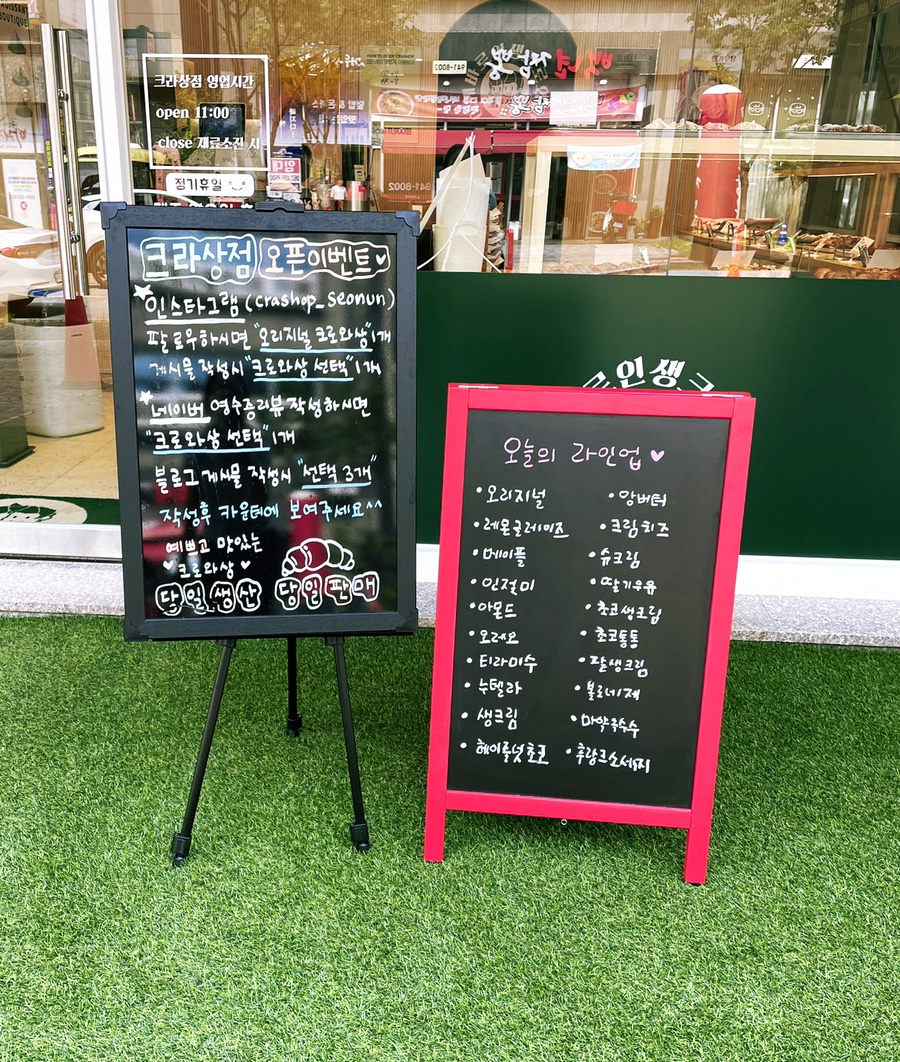 크라상점 영업시간
open 11:00
close 재료소진 시
정기휴일
941-8002
크라상점 오픈이벤트♥
인스타그램 (crashop_seonun)
팔로우하시면 "오리지널 크로와상" 1개
게시물 작성시 "크로와상 선택" 1개
네이버 영수증리뷰 작성하시면
"크로와상 선택" 1개
블로그 게시물 작성시 "선택 3개"
작성후 카운터에 보여주세요^^
예쁘고 맛있는
♥크로와상♥
당일생산 당일판매
인생
오늘의 라인업 ♥
• 오리지널 • 앙버터
• 레몬글레이즈 • 크림치즈
• 메이플 • 슈크림
• 인절미 • 딸기우유
• 아몬드 • 초코생크림
• 오레오 • 초코통통
• 티라미수 • 팥생크림
• 누텔라 • 볼로네제
• 생크림 • 마약옥수수
• 헤이즐넛초코 • 후랑크소세지